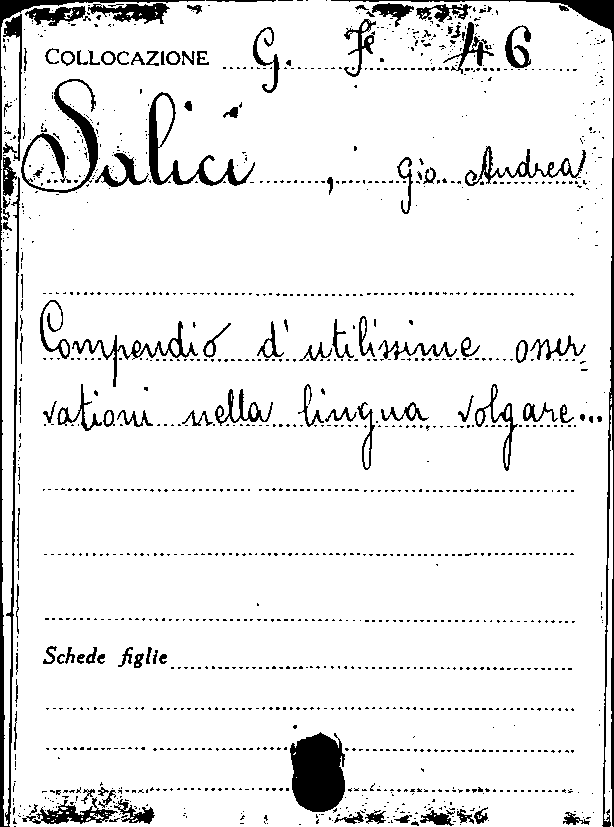 COLLOCAZIONE G. Fe. 46
Salici, Gio. Andrea
Compendio d'utilissime osser=
vationi nella lingua volgare...
Schede figlie